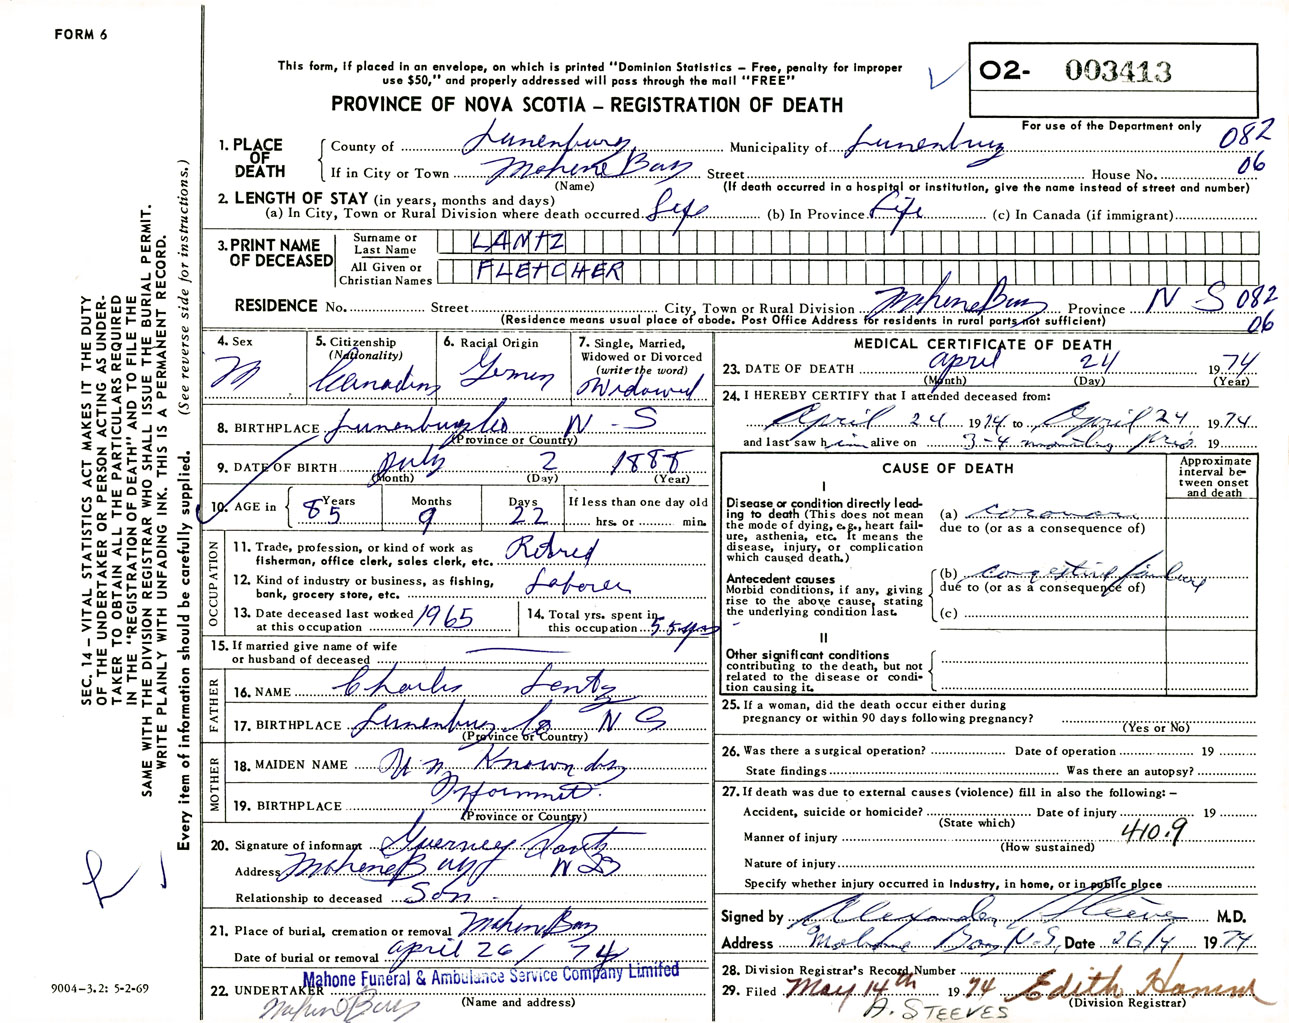 FORM 6
This form, if placed in an envelope, on which is printed "Dominion Statistics – Free, penalty for improper
use $50," and properly addressed will pass through the mail "FREE"
O2- 003413
PROVINCE OF NOVA SCOTIA – REGISTRATION OF DEATH
For use of the Department only
1. PLACE OF DEATH
County of Lunenburg Municipality of Lunenburg 082
If in City or Town Mahone Bay Street House No. 06
(Name) (If death occurred in a hospital or institution, give the name instead of street and number)
2. LENGTH OF STAY (in years, months and days)
(a) In City, Town or Rural Division where death occurred. Life (b) In Province. Life (c) In Canada (if immigrant)
3. PRINT NAME OF DECEASED
Surname or Last Name LANTZ
All Given or Christian Names FLETCHER
RESIDENCE No. Street City, Town or Rural Division Mahone Bay Province N-S 082
(Residence means usual place of abode. Post Office Address for residents in rural parts not sufficient) 06
4. Sex M
5. Citizenship (Nationality) Canadian
6. Racial Origin German
7. Single, Married, Widowed or Divorced (write the word) Widowed
8. BIRTHPLACE Lunenburg Co N-S
(Province or Country)
9. DATE OF BIRTH July 2 1888
(Month) (Day) (Year)
10. AGE in Years 85 Months 9 Days 22 If less than one day old
hrs. or min.
OCCUPATION
11. Trade, profession, or kind of work as fisherman, office clerk, sales clerk, etc. Retired
12. Kind of industry or business, as fishing, bank, grocery store, etc. Laborer
13. Date deceased last worked at this occupation 1965
14. Total yrs. spent in this occupation 55 yrs
15. If married give name of wife or husband of deceased
FATHER
16. NAME Charles Lentz
17. BIRTHPLACE Lunenburg Co N S
(Province or Country)
MOTHER
18. MAIDEN NAME Un Known by
19. BIRTHPLACE Informnt.
(Province or Country)
20. Signature of informant Guerney Lantz
Address Mahone Bay N S
Relationship to deceased Son
21. Place of burial, cremation or removal Mahone Bay
Date of burial or removal april 26/74
Mahone Funeral & Ambulance Service Company Limited
22. UNDERTAKER Mahone Bay
(Name and address)
MEDICAL CERTIFICATE OF DEATH
23. DATE OF DEATH april 24 1974
(Month) (Day) (Year)
24. I HEREBY CERTIFY that I attended deceased from:
April 24 1974 to April 24 1974
and last saw him alive on 3-4 19
CAUSE OF DEATH
Approximate interval between onset and death
I
Disease or condition directly lead-
ing to death (This does not mean
the mode of dying, e.g., heart fail-
ure, asthenia, etc. It means the
disease, injury, or complication
which caused death.)
(a)
due to (or as a consequence of)
Antecedent causes
Morbid conditions, if any, giving
rise to the above cause, stating
the underlying condition last.
(b) congestive failure
due to (or as a consequence of)
(c)
II
Other significant conditions
contributing to the death, but not
related to the disease or condi-
tion causing it.
25. If a woman, did the death occur either during
pregnancy or within 90 days following pregnancy?
(Yes or No)
26. Was there a surgical operation? Date of operation 19
State findings Was there an autopsy?
27. If death was due to external causes (violence) fill in also the following: –
Accident, suicide or homicide? Date of injury 19
(State which)
Manner of injury 410.9
(How sustained)
Nature of injury
Specify whether injury occurred in Industry, in home, or in public place
Signed by Alexander Steeves M.D.
Address Mahone Bay, N.S. Date 26/4 1974
28. Division Registrar's Record Number
29. Filed May 14th 1974 Edith
(Division Registrar)
A. STEEVES
SEC. 14 – VITAL STATISTICS ACT MAKES IT THE DUTY
OF THE UNDERTAKER OR PERSON ACTING AS UNDER-
TAKER TO OBTAIN ALL THE PARTICULARS REQUIRED
IN THE "REGISTRATION OF DEATH" AND TO FILE THE
SAME WITH THE DIVISION REGISTRAR WHO SHALL ISSUE THE BURIAL PERMIT.
WRITE PLAINLY WITH UNFADING INK. THIS IS A PERMANENT RECORD.
Every item of information should be carefully supplied. (See reverse side for instructions.)
9004-3.2: 5-2-69